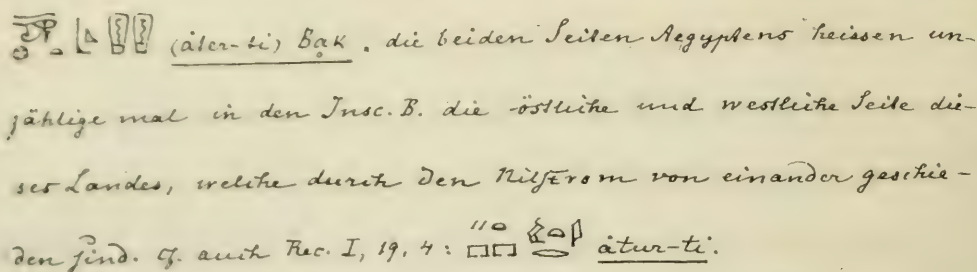 (áter-ti) Bąk. die beiden Seiten Aegyptens heissen un-
zählige mal in den Insc. B. die östliche und westliche Seite die-
ses Landes, welche durch den Nilstrom von einander geschie-
den sind. cf. auch Rec. I, 19, 4: átur-ti.